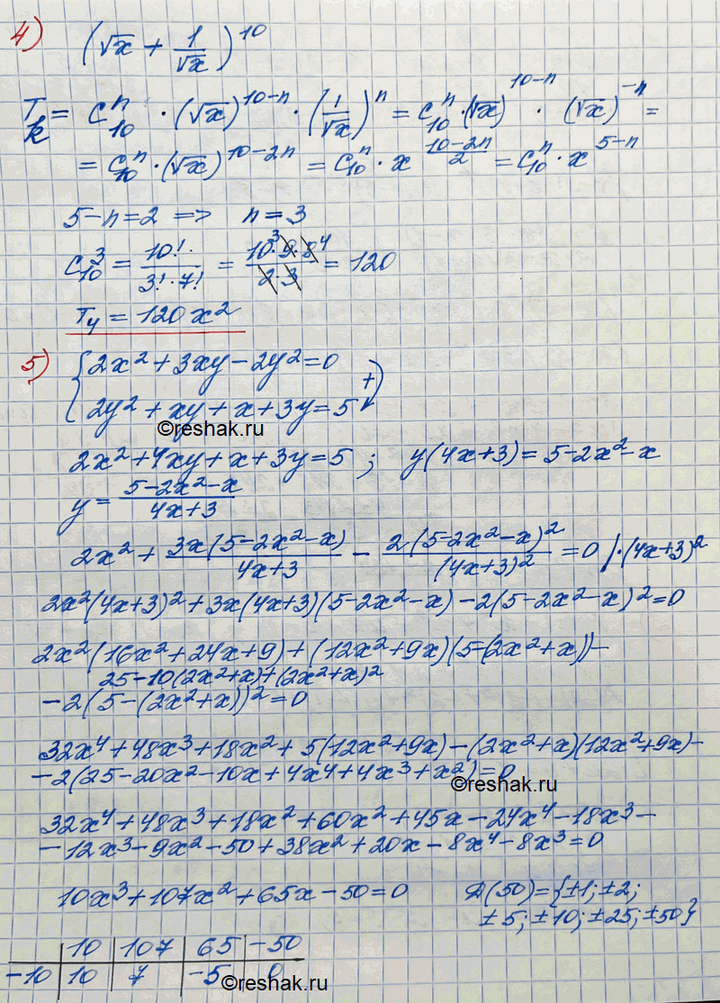 4) (√x + 1/√x)^10
T_k = C_10^n · (√x)^(10-n) · (1/√x)^n = C_10^n · (√x)^(10-n) · (√x)^(-n) =
= C_10^n · (√x)^(10-2n) = C_10^n · x^((10-2n)/2) = C_10^n · x^(5-n)
5-n=2 => n=3
C_10^3 = 10!·/(3!·7!) = 10·9·8/(2·3) = 120
3 4
T_4 = 120x²
5) { 2x² + 3xy - 2y² = 0
2y² + xy + x + 3y = 5 (+)
©reshak.ru
2x² + 4xy + x + 3y = 5 ; y(4x+3) = 5-2x²-x
y = (5-2x²-x)/(4x+3)
2x² + 3x(5-2x²-x)/(4x+3) - 2(5-2x²-x)²/(4x+3)² = 0 |·(4x+3)²
2x²(4x+3)² + 3x(4x+3)(5-2x²-x) - 2(5-2x²-x)² = 0
2x²(16x²+24x+9) + (12x²+9x)(5-(2x²+x)) -
25-10(2x²+x)+(2x²+x)²
-2(5-(2x²+x))² = 0
32x⁴+48x³+18x²+5(12x²+9x)-(2x²+x)(12x²+9x)-
-2(25-20x²-10x+4x⁴+4x³+x²)=0
©reshak.ru
32x⁴+48x³+18x²+60x²+45x-24x⁴-18x³-
-12x³-9x²-50+38x²+20x-8x⁴-8x³=0
10x³+107x²+65x-50=0 Д(50)={±1;±2;
±5;±10;±25;±50}
10 | 107 | 65 | -50
-10 | 10 | 7 | -5 | 0
©reshak.ru